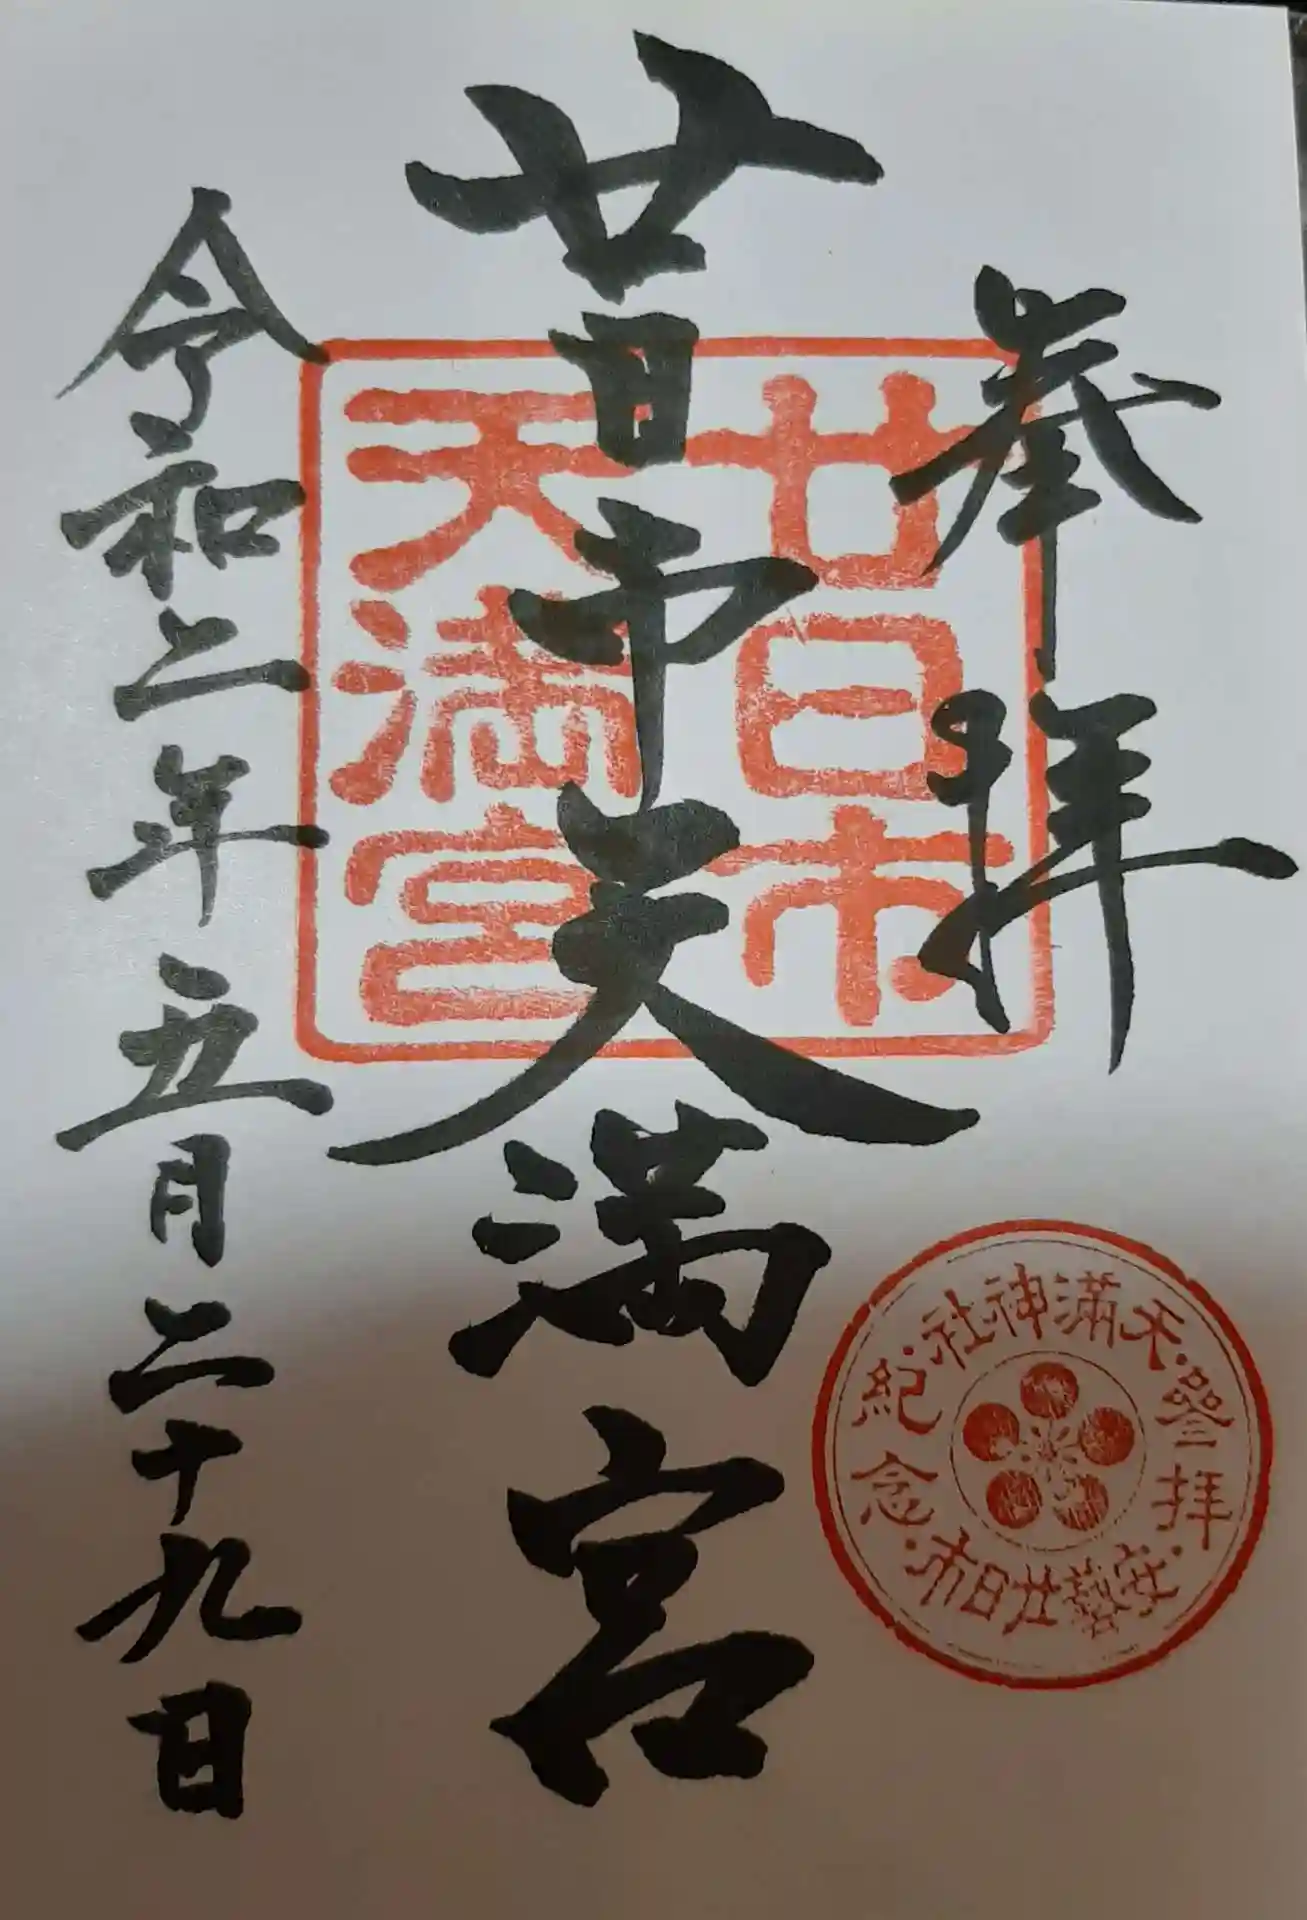 奉拝
廿日市天満宮
令和二年五月二十九日
廿日市
天満宮
天満神社
参拝
紀念
安藝廿日市